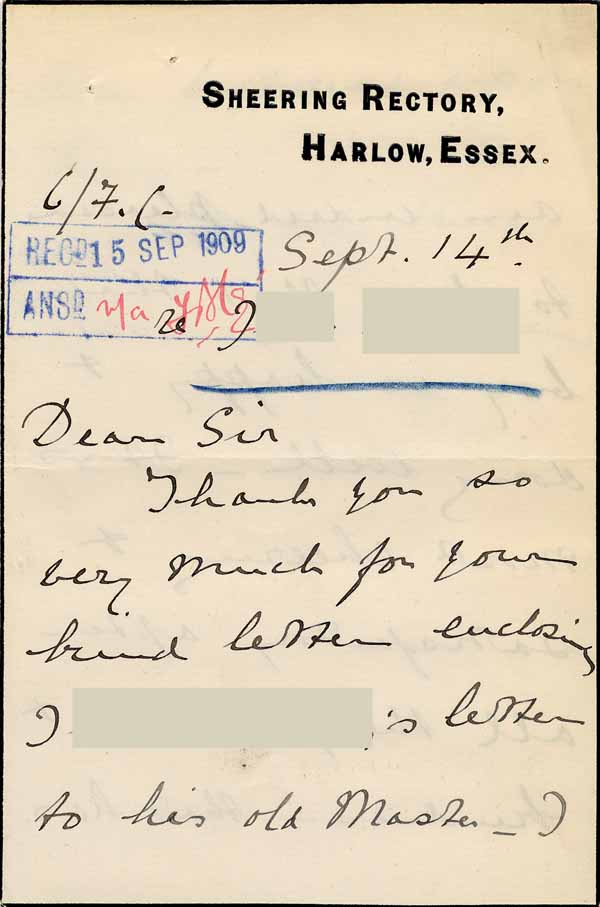 SHEERING RECTORY,
HARLOW, ESSEX.
RECD 15 SEP 1909
Sept. 14th.
ANSD
re J
Dear Sir
Thank you so
very much for your
kind letter enclosing
J 's letter
to his old Master – I